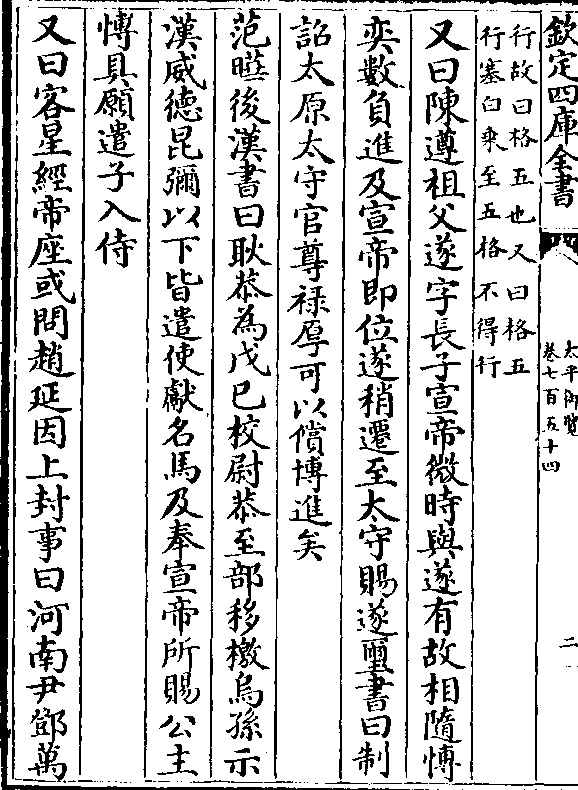 欽定四庫全書
太平御覽
卷七百五十四
二
行故曰格五也又曰格五
行塞白乘至五格不得行
又曰陳遵祖父遂字長子宣帝微時與遂有故相隨愽
奕數負進及宣帝即位遂稍遷至太守賜遂璽書曰制
詔太原太守官尊祿厚可以償博進矣
范曄後漢書曰耿恭為戊巳校尉恭至部移檄烏孫示
漢威德昆彌以下皆遣使獻名馬及奉宣帝所賜公主
愽具願遣子入侍
又曰客星經帝座或問趙延因上封事曰河南尹鄧萬